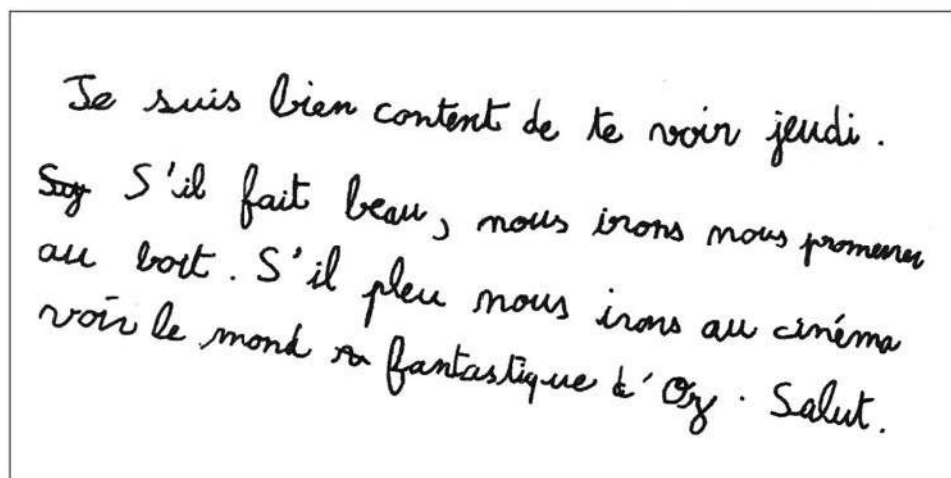 Je suis bien content de te voir jeudi.
S'il fait beau, nous irons nous promener
au boit. S'il pleu nous irons au cinéma
voir le mond fantastique d'Oz. Salut.